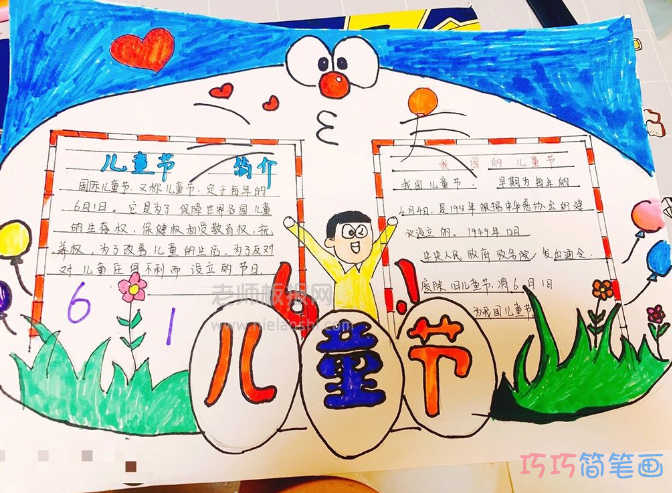 儿童节 简介
国际儿童节,又称儿童节,定于每年的
6月1日。它是为了保障世界各国儿童
的生存权、保健权和受教育权、抚
养权,为了改善儿童的生活,为了反对
对儿童 不利而设立的节日
6 1
我国的儿童节
我国儿童节, 早期为每年的
4月4日,是19 年根据中华 的建
议设立的。1949年12月
中央人民政府政务院 发出通令,
废除旧儿童节,将6月1日
为我国儿童节
6.1
儿童节
老师板报网
巧巧简笔画